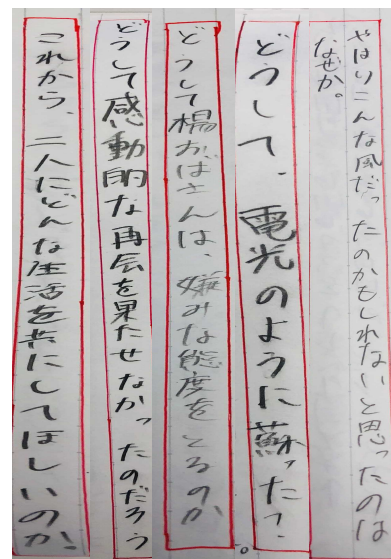 やはりこんな風だったのかもしれないと思ったのは
なぜか。
どうして、電光のように蘇った?
どうして楊おばさんは、嫌みな態度をとるのか。
どうして感動的な再会を果たせなかったのだろう
これから、二人にどんな生活を共にしてほしいのか。